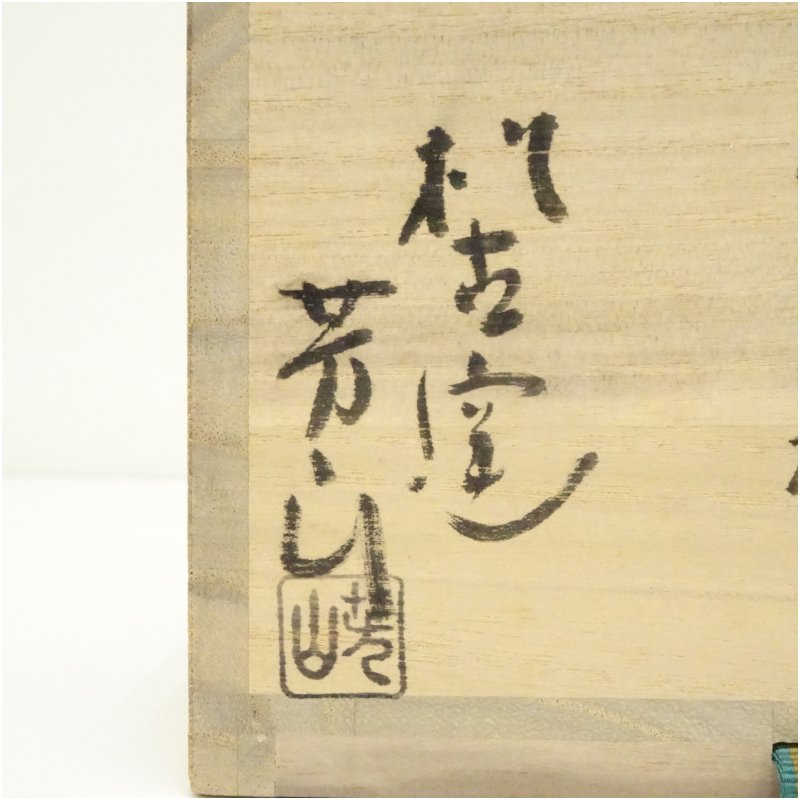 松古窯
芳山
芳山